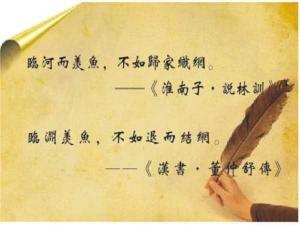 臨河而羨魚，不如歸家織網。
——《淮南子·說林訓》
臨淵羨魚，不如退而結網。
——《漢書·董仲舒傳》